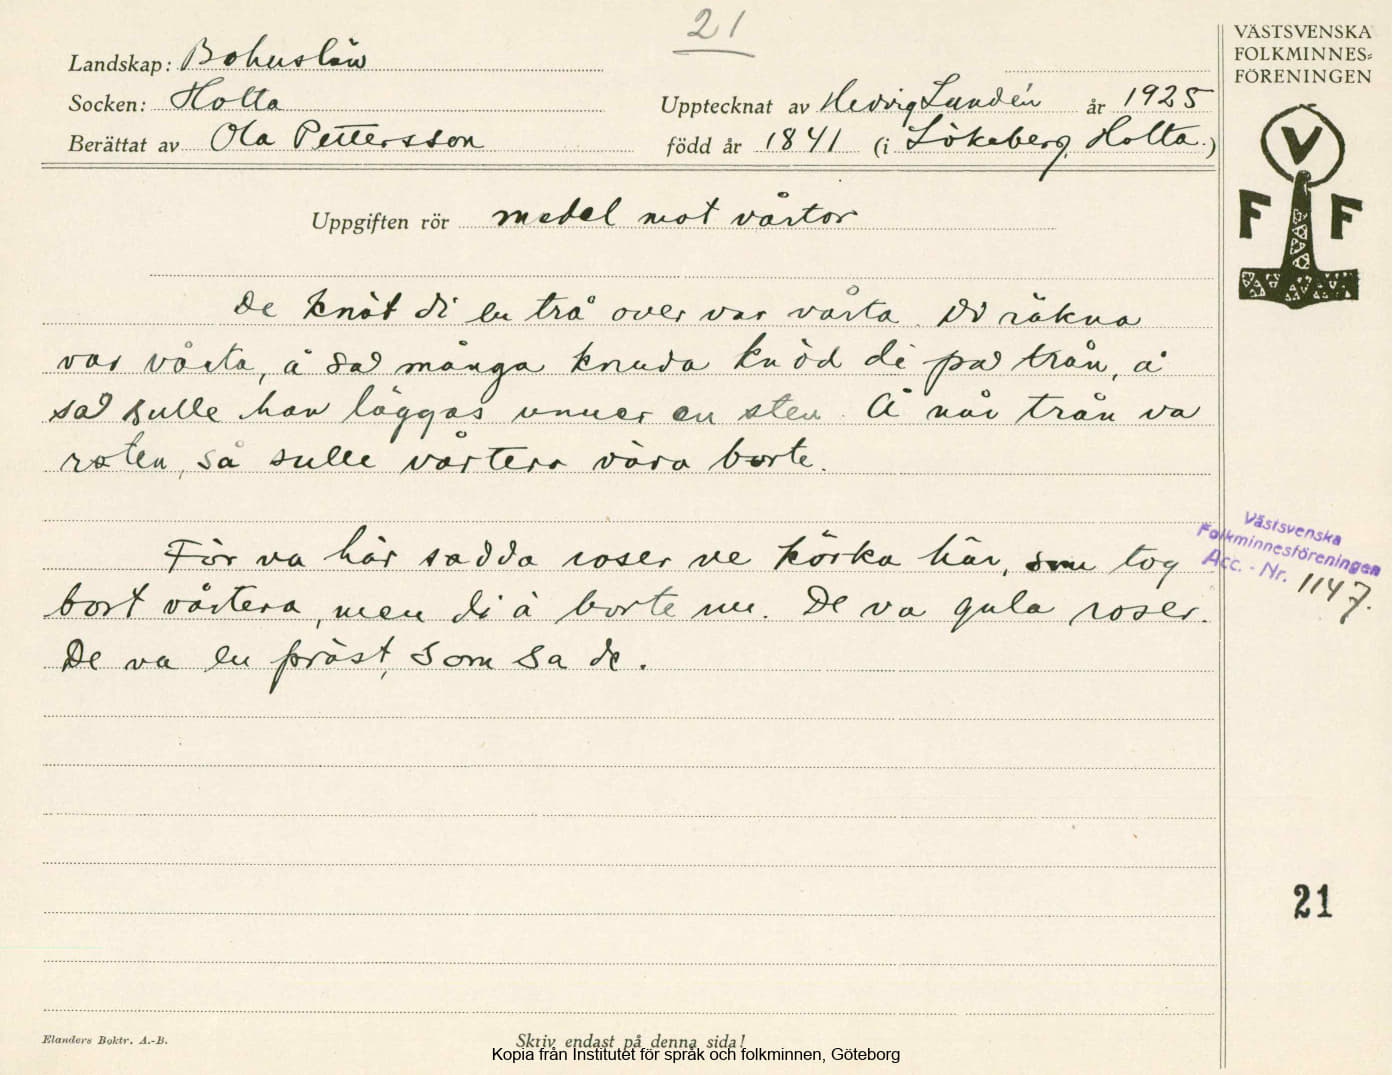 21
Landskap: Bohuslän
Socken: Holta
Upptecknat av Hedvig Lundén år 1925
Berättat av Ola Pettersson
född år 1841 (i Lökeberg, Holta.)
Uppgiften rör medel mot vårtor
De knöt di en trå over var vårta. Di räkna
var vårta, å så många knuda knöd di på trån, å
så sulle han läggas unner en sten. Å når trån va
roten, så sulle vårtera våra borte.
För va här sadda roser ve körka här, som tog
bort vårtera, men di ä borte nu. De va gula roser.
De va en präst, som sa de.
VÄSTSVENSKA
FOLKMINNES=
FÖRENINGEN
V
F F
Västsvenska
Folkminnesföreningen
Acc. - Nr. 1147.
21
Elanders Boktr. A.-B.
Skriv endast på denna sida!
Kopia från Institutet för språk och folkminnen, Göteborg